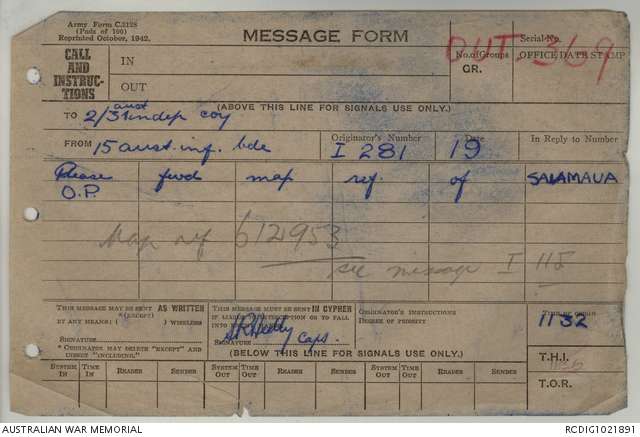 Army Form C.2128
(Pads of 100)
Reprinted October, 1942.
MESSAGE FORM
Serial No.
CALL AND INSTRUCTIONS
IN
OUT
No. of Groups
GR.
OFFICE DATE STAMP
OUT. 369
(ABOVE THIS LINE FOR SIGNALS USE ONLY.)
TO 2/3 aust indep coy
FROM 15 aust. inf. bde
Originator's Number
I 281
Date
19
In Reply to Number
Please fwd map ref. of SALAMAUA
O.P.
Map ref 612953
see message I 115
THIS MESSAGE MAY BE SENT AS WRITTEN
(EXCEPT)
BY ANY MEANS ( ) WIRELESS
SIGNATURE
* ORIGINATOR MAY DELETE "EXCEPT" AND UNDER "INCLUDING."
THIS MESSAGE MUST BE SENT IN CYPHER
IF LIABLE TO INTERCEPTION OR TO FALL INTO
SIGNATURE
Capt.
ORIGINATOR'S INSTRUCTIONS
DEGREE OF PRIORITY
TIME OF ORIGIN
1132
(BELOW THIS LINE FOR SIGNALS USE ONLY.)
T.H.I.
T.O.R.
SYSTEM IN TIME IN READER SENDER SYSTEM OUT TIME OUT READER SENDER SYSTEM OUT TIME OUT READER SENDER
AUSTRALIAN WAR MEMORIAL
RCDIG1021891